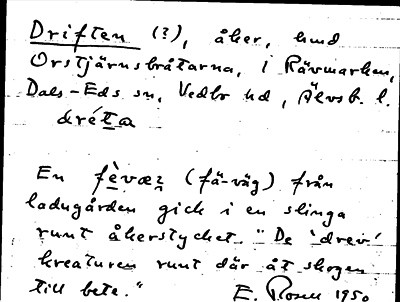 Driften (?), åker, hmd
Orstjärnsbråtarna, i Rävmarken,
Dals-Eds sn, Vedbo hd, Älvsb. l.
dréta
En fèvæz (fä-väg) från
ladugården gick i en slinga
runt åkerstycket. "De 'drev'
kreaturen runt där åt skogen
till bete." E. Rosell 1950